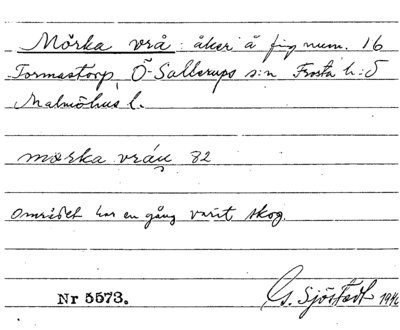 Mörka vrå : åker å fig num. 16
Tormastorp, Ö-Sallerups s:n Frosta h:d
Malmöhus l.
mørka vráu 82
området har en gång varit skog.
Nr 5573. G. Sjöstedt 1946